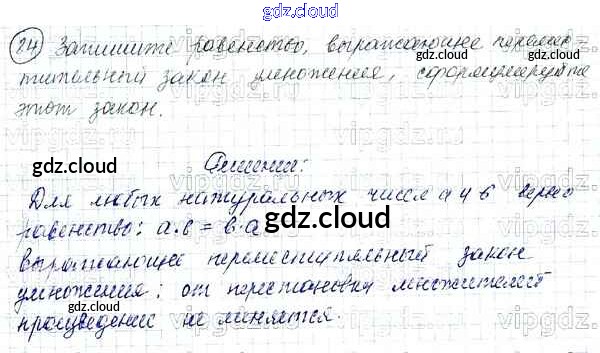 gdz.cloud
24) Запишите равенство, выражающее перемес-
тительный закон умножения, сформулируйте
этот закон.
gdz.cloud
gdz.cloud
Решение:
Для любых натуральных чисел a и b верно
равенство: a·b = b·a
gdz.cloud
выражающее переместительный закон
умножения: от перестановки множителей
произведение не меняется.
gdz.cloud
gdz.cloud